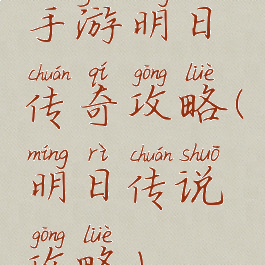 手游明日
chuán qí gōng lüè
传奇攻略(
míng rì chuán shuō
明日传说
gōng lüè
攻略)